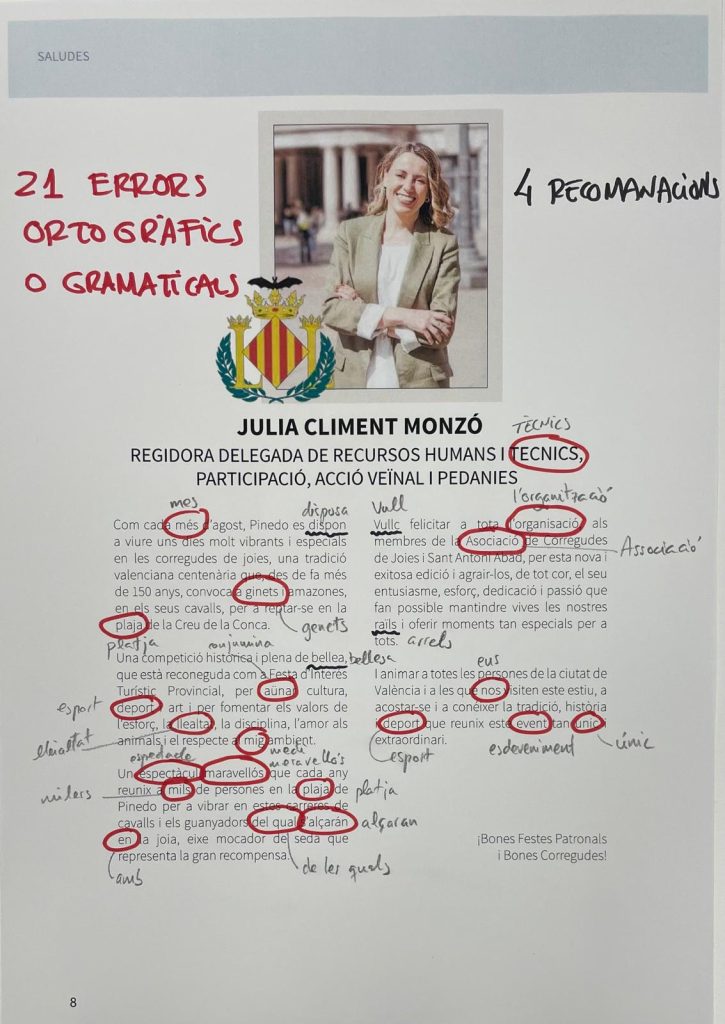 SALUDES
21 ERRORS
ORTOGRÀFICS
O GRAMATICALS
4 RECOMANACIONS
JULIA CLIMENT MONZÓ
TÈCNICS
REGIDORA DELEGADA DE RECURSOS HUMANS I TECNICS,
PARTICIPACIÓ, ACCIÓ VEÏNAL I PEDANIES
mes
disposa
Com cada més d'agost, Pinedo es dispon
a viure uns dies molt vibrants i especials
en les corregudes de joies, una tradició
valenciana centenària que, des de fa més
de 150 anys, convoca a ginets i amazones,
en els seus cavalls, per a reptar-se en la
genets
plaja de la Creu de la Conca.
platja
conjumina
Una competició històrica i plena de bellea,
bellesa
que està reconeguda com a Festa d'Interés
Turístic Provincial, per aünar cultura,
esport
deport, art i per fomentar els valors de
l'esforç, la llealtat, la disciplina, l'amor als
lleialtat
animals i el respecte al mig ambient.
medi
espectacle
meravellós
Un espectàcul maravellós que cada any
milers
reunix a mils de persones en la plaja de
platja
Pinedo per a vibrar en estes carreres de
cavalls i els guanyadors del qual s'alçarán
alçaran
en la joia, eixe mocador de seda que
representa la gran recompensa.
amb
de les quals
Vull
l'organització
Vullc felicitar a tota l'organisació, als
membres de la Asociació de Corregudes
Associació
de Joies i Sant Antoni Abad, per esta nova i
exitosa edició i agrair-los, de tot cor, el seu
entusiasme, esforç, dedicació i passió que
fan possible mantindre vives les nostres
raïls i oferir moments tan especials per a
tots.
arrels
eus
I animar a totes les persones de la ciutat de
València i a les que nos visiten este estiu, a
acostar-se i a conéixer la tradició, història
i deport que reunix este event tan unic i
extraordinari.
esport
esdeveniment
únic
¡Bones Festes Patronals
i Bones Corregudes!
8